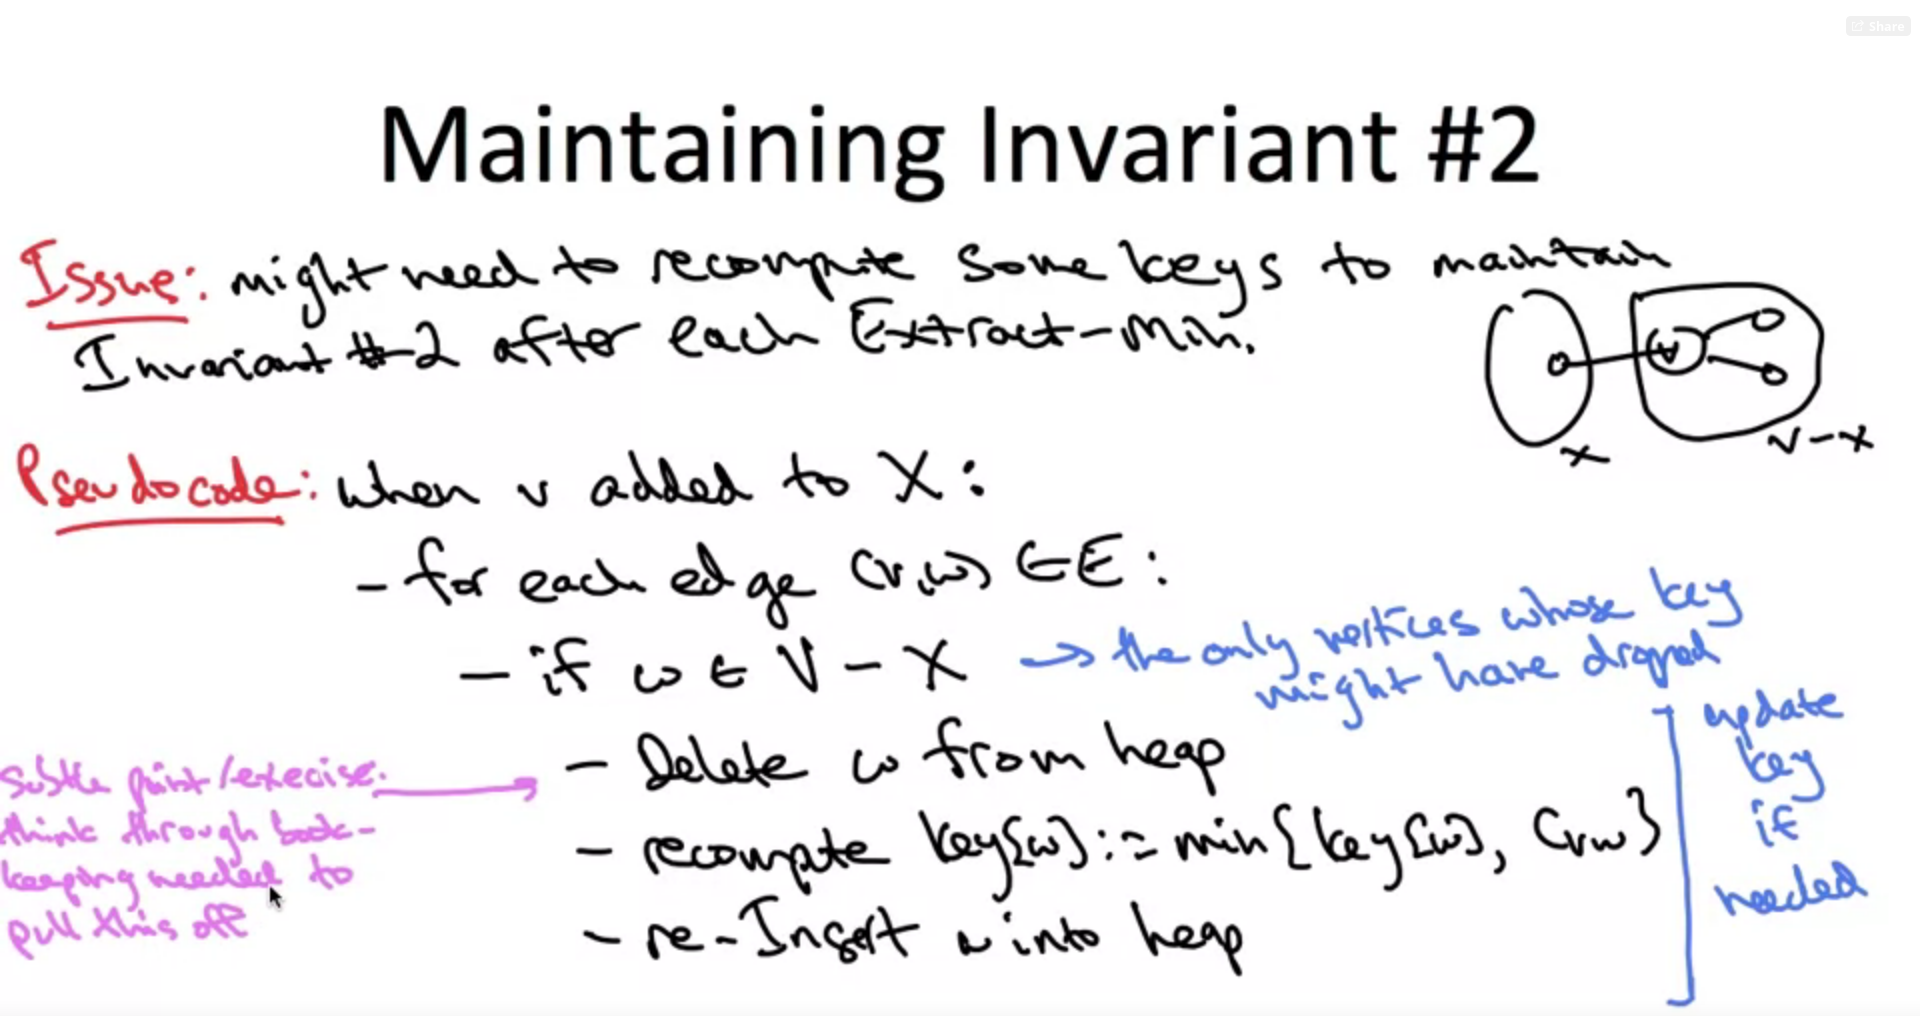 Share
Maintaining Invariant #2
Issue: might need to recompute some keys to maintain
Invariant #2 after each Extract-Min.
v
X
V-X
Pseudocode: when v added to X:
- for each edge (v,w) ∈ E:
- if w ∈ V - X → the only vertices whose key
might have dropped
- Delete w from heap
- recompute key[w] := min{key[w], Cvw}
- re-Insert w into heap
update
key
if
needed
subtle point/exercise:
think through book-
keeping needed to
pull this off